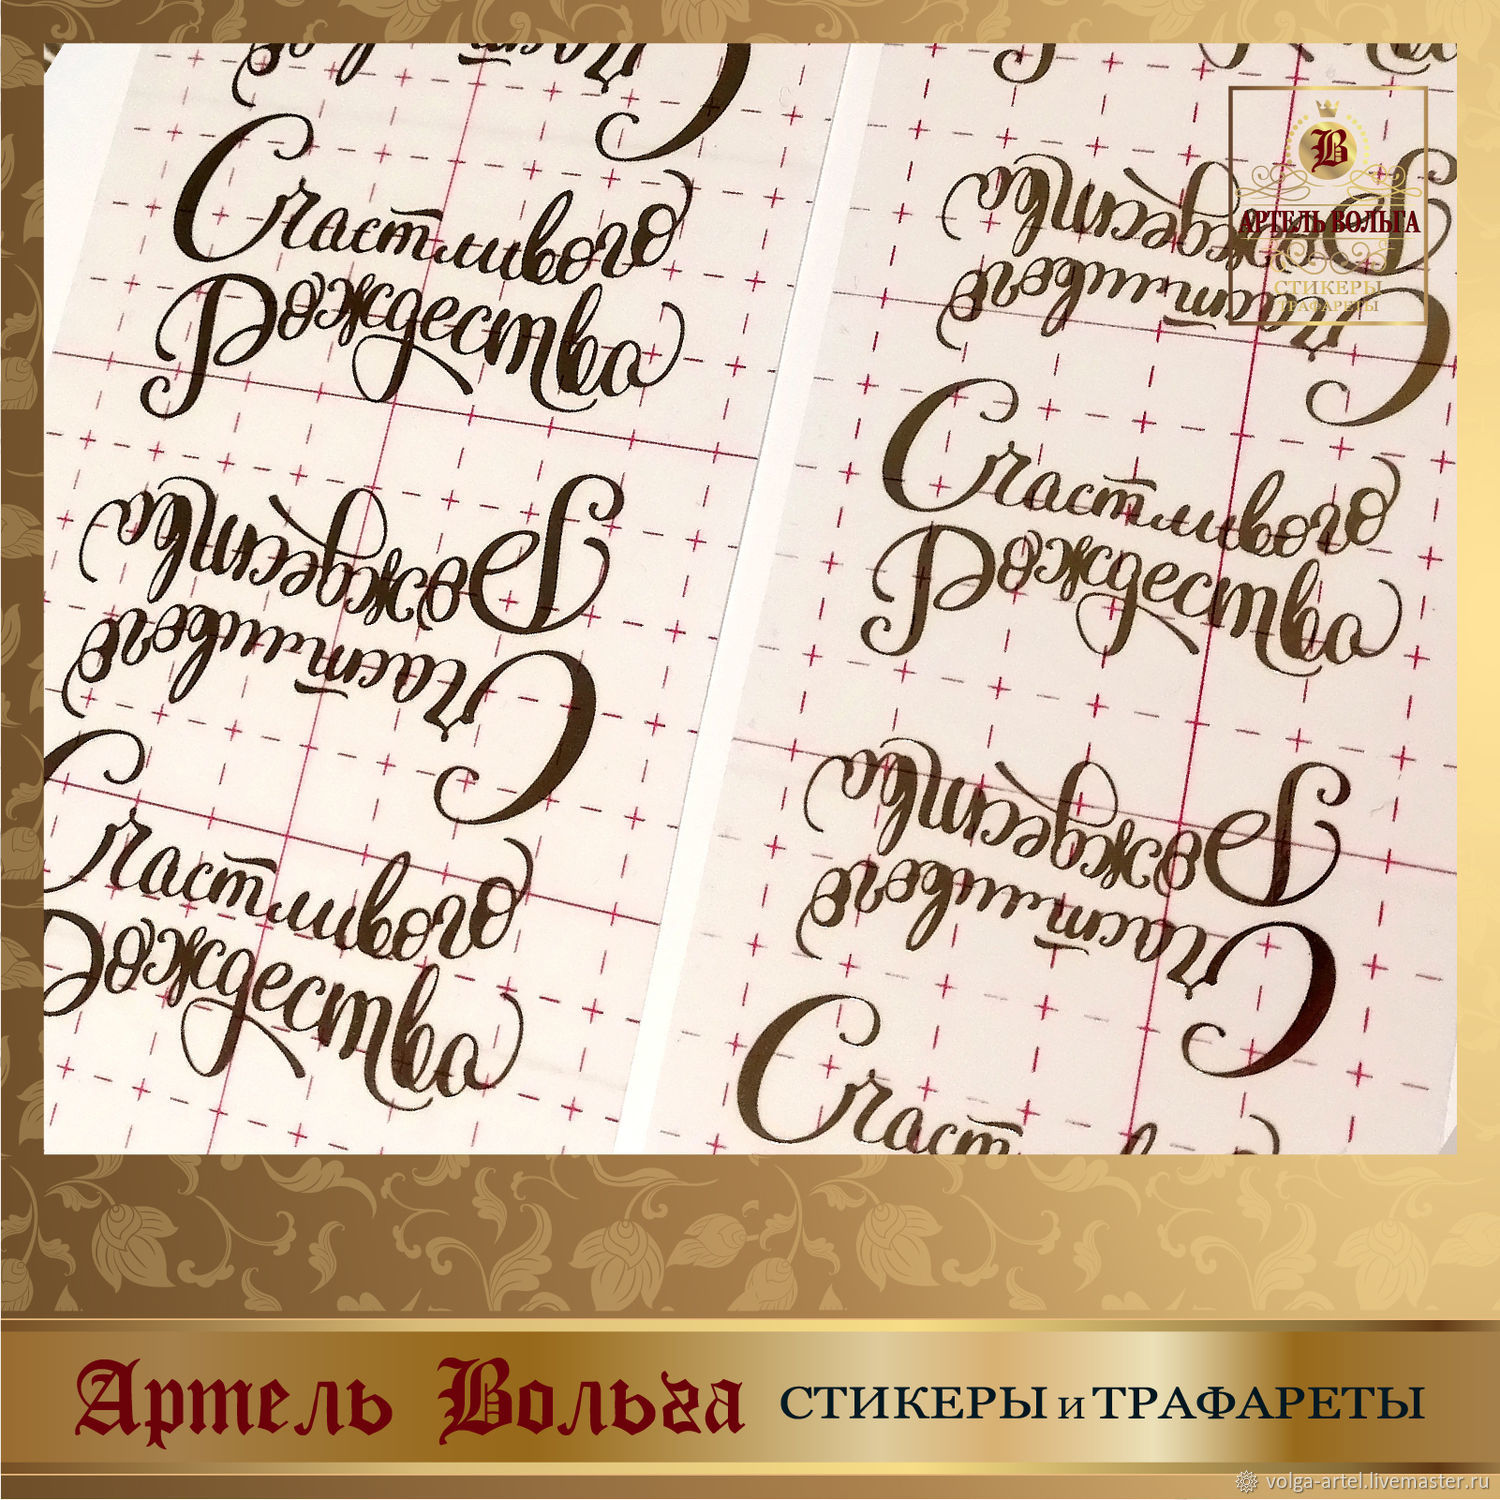 Счастливого
Рождества
Рождества
Счастливого
Счастливого
Рождества
Рождества
Счастливого
Счастливого
Рождества
Рождества
Счастливого
Счаст
В
АРТЕЛЬ ВОЛЬГА
СТИКЕРЫ
ТРАФАРЕТЫ
Артель Вольга СТИКЕРЫ и ТРАФАРЕТЫ
volga-artel.livemaster.ru